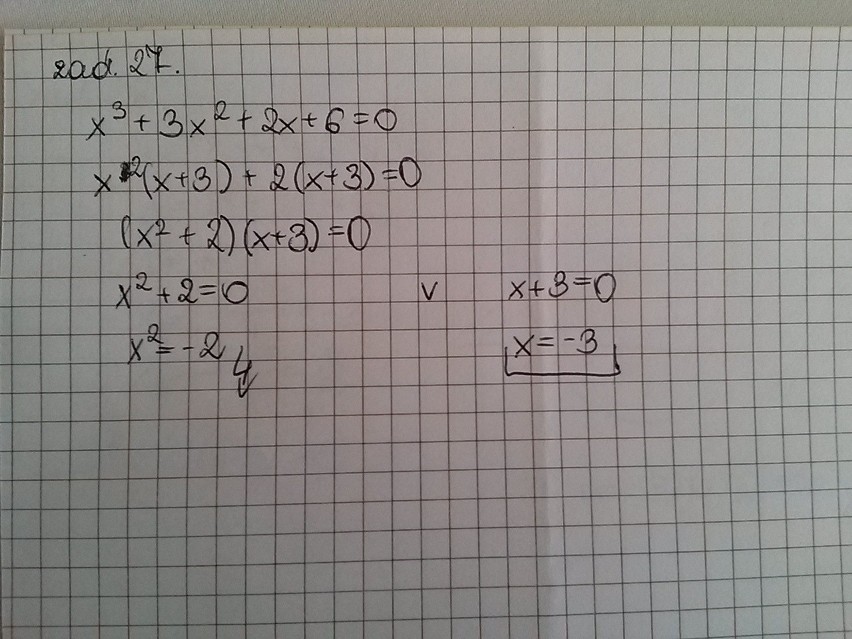 zad. 27.
x³ + 3x² + 2x + 6 = 0
x²(x+3) + 2(x+3) = 0
(x² + 2)(x+3) = 0
x² + 2 = 0 v x+3=0
x² = -2 ↯ x = -3